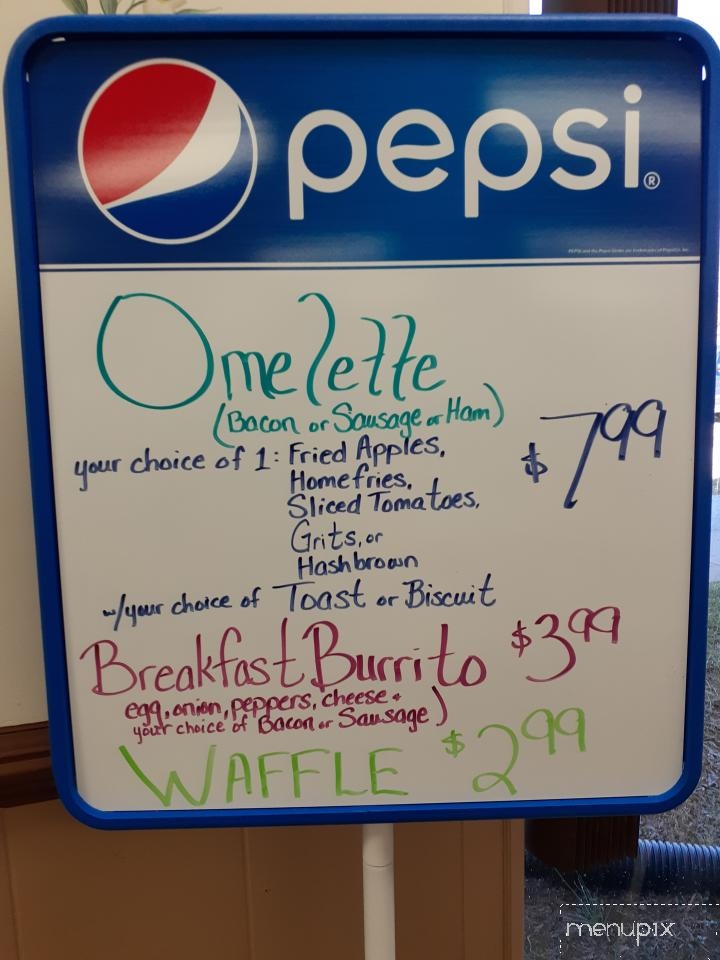 pepsi®
Omelette
(Bacon or Sausage or Ham)
your choice of 1: Fried Apples, $7.99
Homefries,
Sliced Tomatoes,
Grits, or
Hashbrown
w/your choice of Toast or Biscuit
Breakfast Burrito $3.99
egg, onion, peppers, cheese +
your choice of Bacon or Sausage)
WAFFLE $2.99
menupix